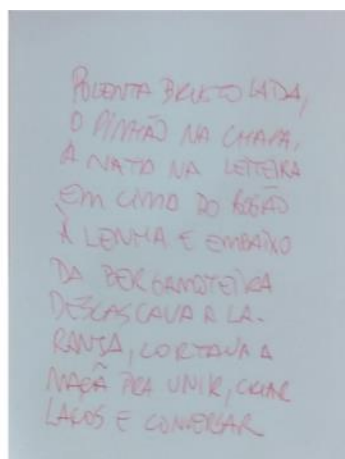 POLENTA BRUSTOLADA,
O PINHÃO NA CHAPA,
A NATA NA LEITEIRA
EM CIMA DO FOGÃO
À LENHA E EMBAIXO
DA BERGAMOTEIRA
DESCASCAVA A LA-
RANJA, CORTAVA A
MAÇÃ PRA UNIR, CRIAR
LAÇOS E CONVERSAR